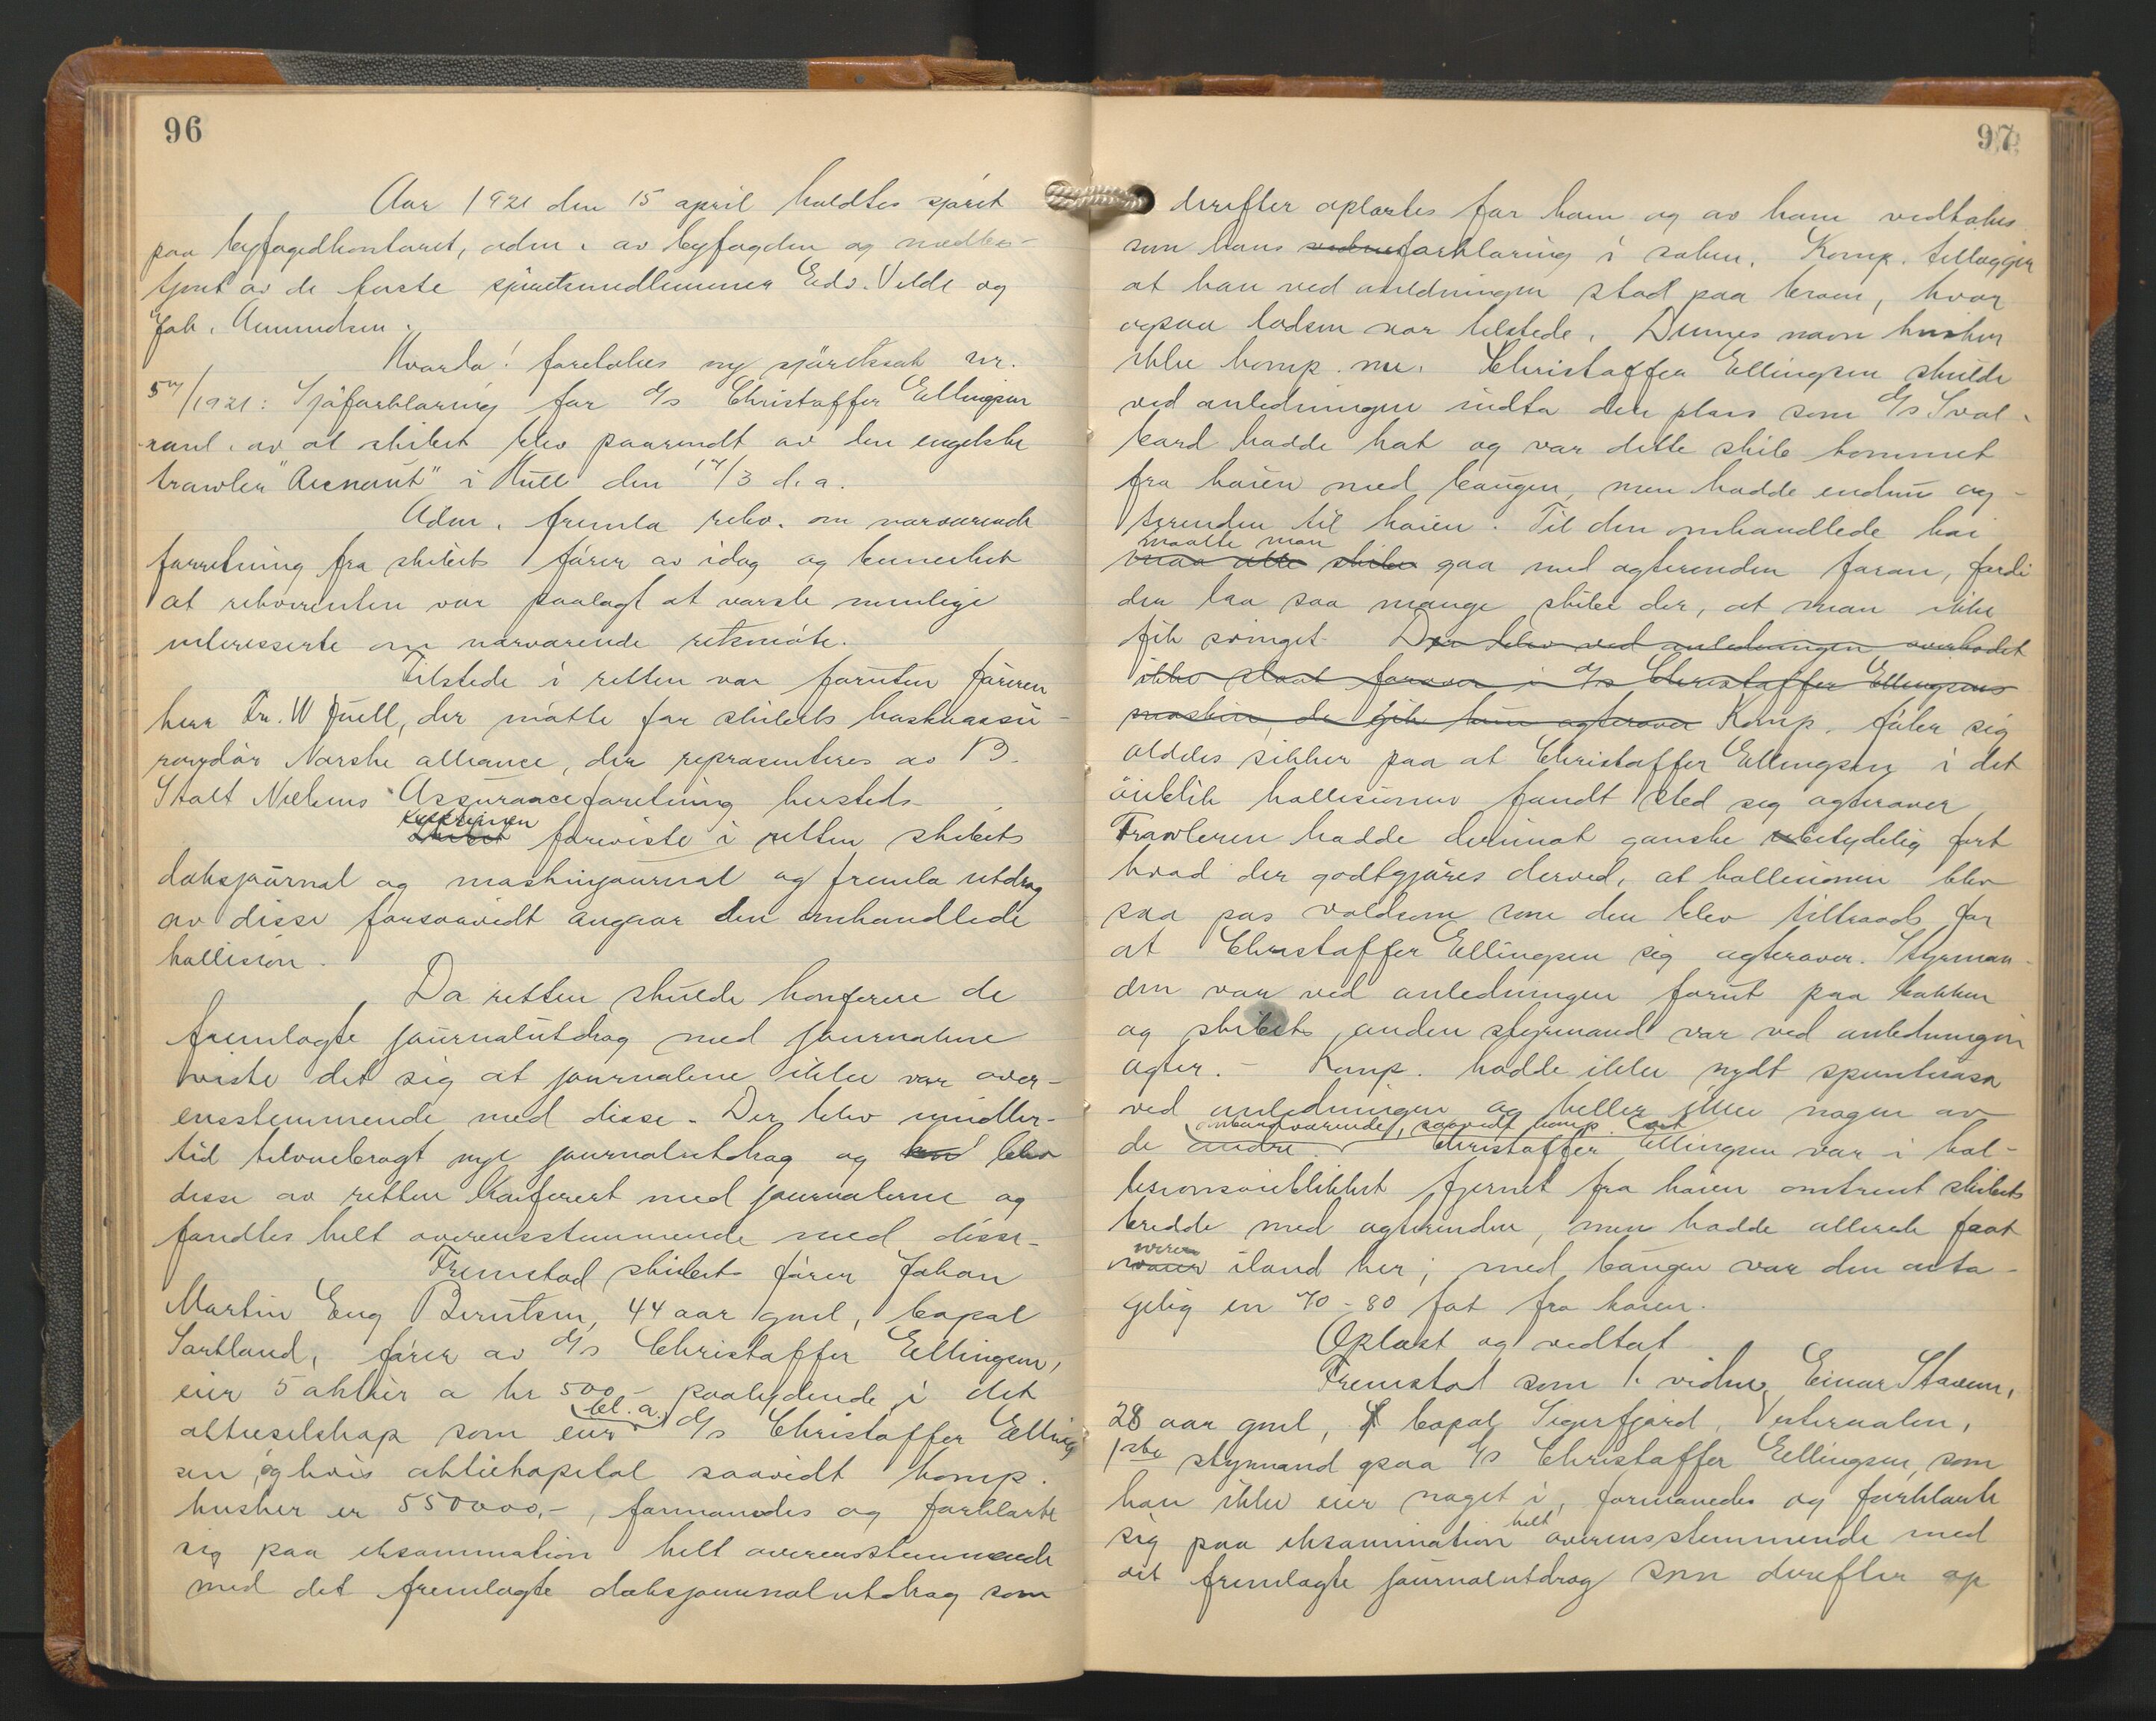 96
Aar 1921 den 15 april holdtes sjøret
paa byfogedkontoret, adm. av byfogden og medbe-
tjent av de faste sjøretsmedlemmer Edv. Velde og
Joh. Amundsen.
Hvorda! foretokes ny sjøretssak nr.
5/1921: Sjøforklaring for D/s Christoffer Ellingsen
anl. av at skibet blev paarendt av den engelske
trawler i Hull den 17/3 d.a.
Adm. fremla rekv. om nærværende
forretning fra skibets fører av idag og bemerket
at rekvirenten var paalagt at varsle mulige
interesserte om nærværende retsmøte.
Tilstede i retten var foruten føreren
herr Fr. W Juell, der møtte for skibets kaskoassu-
randør Norske alliance, der repræsenteres av B.
Stolt Nielsens Assuranceforretning hersteds.
Kapteinen
Skibet foreviste i retten skibets
dæksjournal og maskinjournal og fremla utdrag
av disse forsaavidt angaar den omhandlede
kollision.
Da retten skulde konferere de
fremlagte journalutdrag med journalene
viste det sig at journalene ikke var over-
ensstemmende med disse. Der blev imidler-
tid tilveiebragt nye journalutdrag og blev
disse av retten konferert med journalerne og
fandtes helt overensstemmende med disse.
Fremstod skibets fører Johan
Martin Eng Berntsen, 44 aar gml, bopæl
Sortland, fører av D/s Christoffer Ellingsen,
eier 5 aktier a kr 500,- paalydende i det
bl. a.
aktieselskap som eier D/s Christoffer Elling
sen og hvis aktiekapital saavidt komp.
husker er 550000,-, formanedes og forklarte
sig paa eksamination helt overensstemmende
med det fremlagte dæksjournalutdrag som
97
derefter oplæstes for ham og av ham vedtokes
som hans vidneforklaring i saken. Komp. tillægger
at han ved anledningen stod paa broen, hvor
ogsaa lodsen var tilstede. Dennes navn husker
ikke komp. nu. Christoffer Ellingsen skulde
ved anledningen indta den plass som D/s Sval-
bard hadde hat og var dette skib kommet
fra kaien med baugen, men hadde endnu ag-
terenden til kaien. Til den omhandlede kai
maatte man
maa alle skibe gaa med agterenden foran, fordi
der laa saa mange skibe der, at man ikke
fik svinget. Der blev ved anledningen overhodet
ikke slaat forover i D/s Christoffer Ellingsens
maskin, de gik kun agterover Komp. føler sig
aldeles sikker paa at Christoffer Ellingsen i det
øieblik kollisionen fandt sted seg agterover.
Trawleren hadde derimot ganske betydelig fart
hvad der godtgjøres derved, at kollisionen blev
saa pas voldsom som den blev tiltrods for
at Christoffer Ellingsen sig agterover. Styrman-
den var ved anledningen forut paa bakken
og skibets anden styrmand var ved anledningen
agter. - Komp. hadde ikke nydt spirituosa
ved anledningen og heller ikke nogen av
ombordværende, saavidt komp. vet
de andre. Christoffer Ellingsen var i kol-
lisionsøieblikket fjernet fra kaien omtrent skibets
bredde med agterenden, men hadde allerede faat
wiren
waier iland her; med baugen var den anta-
gelig en 70 - 80 fot fra kaien.
Oplæst og vedtat
Fremstod som 1. vidne Einar Stavem,
28 aar gml, bopæl Sigerfjord, Vesteraalen,
1ste styrmand paa D/s Christoffer Ellingsen, som
han ikke eier noget i, formanedes og forklarte
helt
sig paa eksamination overensstemmende med
det fremlagte journalutdrag som derefter op